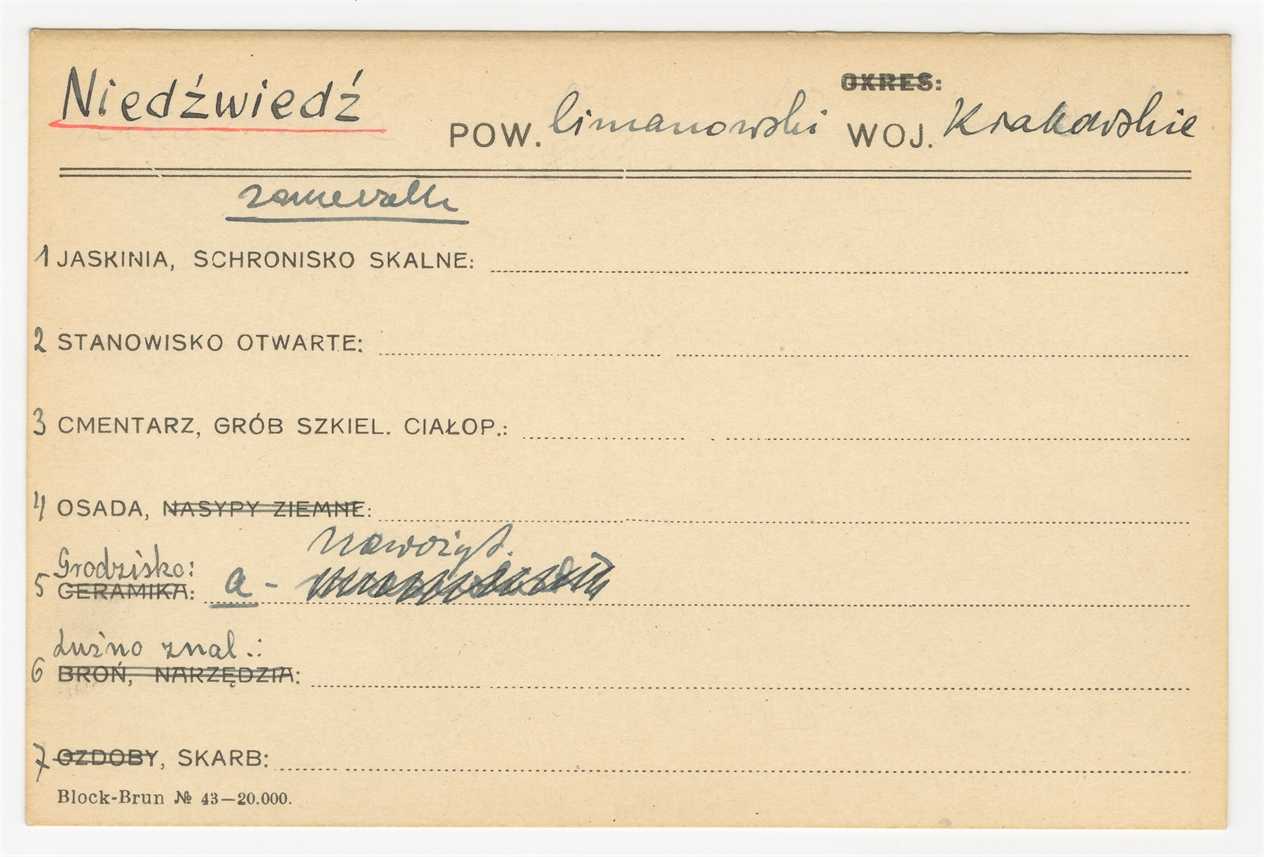 Niedźwiedź
OKRES:
POW. limanowski WOJ. Krakowskie
1 JASKINIA, SCHRONISKO SKALNE:
2 STANOWISKO OTWARTE:
3 CMENTARZ, GRÓB SZKIEL. CIAŁOP.:
4 OSADA, NASYPY ZIEMNE:
nowożyt.
Grodzisko:
5 CERAMIKA: a -
Luźno znal.:
6 BROŃ, NARZĘDZIA:
7 OZDOBY, SKARB:
Block-Brun № 43—20.000.